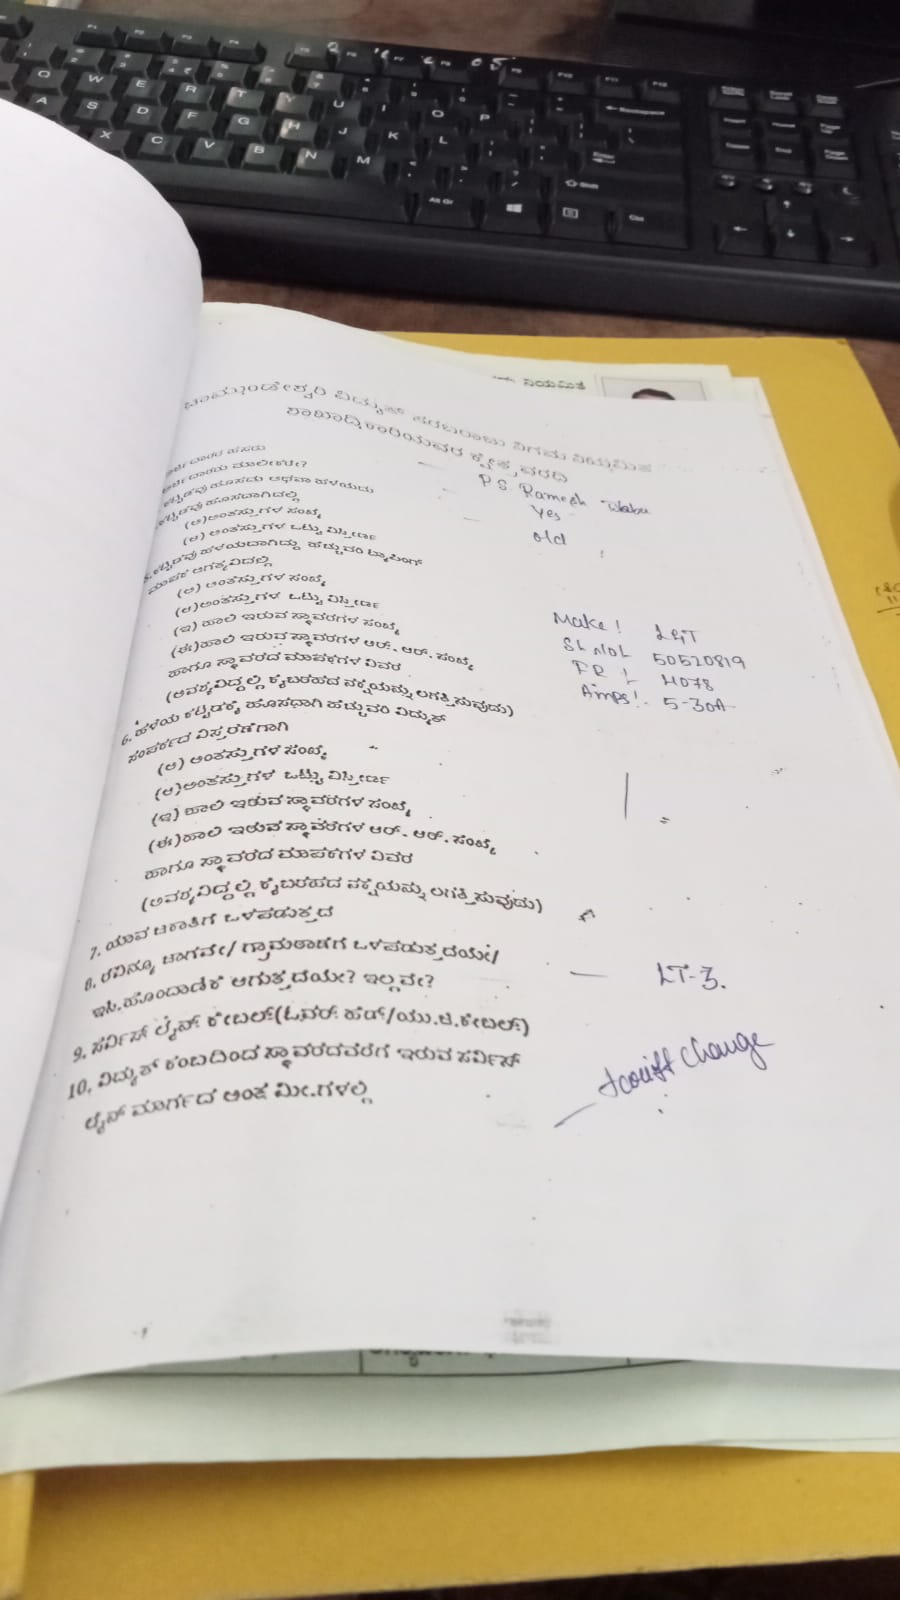 ನಿಯಮಿತ
ಚಾಮುಂಡೇಶ್ವರಿ ವಿದ್ಯುತ್ ಸರಬರಾಜು ನಿಗಮ ನಿಯಮಿತ
ಶಾಖಾಧಿಕಾರಿಯವರ ಕ್ಷೇತ್ರ ವರದಿ
ಹೆಸರು - P.S. Ramesh Babu
ಮಾಲೀಕರೇ? - Yes
ಕಟ್ಟಡವು ಹೊಸದು ಅಥವಾ ಹಳೆಯದು - old
ಕಟ್ಟಡವು ಹೊಸದಾಗಿದಲ್ಲಿ
(ಅ)ಅಂತಸ್ತುಗಳ ಸಂಖ್ಯೆ
(ಆ) ಅಂತಸ್ತುಗಳ ಒಟ್ಟು ವಿಸ್ತೀರ್ಣ
5. ಕಟ್ಟಡವು ಹಳೆಯದಾಗಿದ್ದು ಹೆಚ್ಚುವರಿ ಟ್ಯಾಪಿಂಗ್
ಮಾಪಕ ಅಗತ್ಯವಿದಲ್ಲಿ
(ಅ) ಅಂತಸ್ತುಗಳ ಸಂಖ್ಯೆ
(ಆ)ಅಂತಸ್ತುಗಳ ಒಟ್ಟು ವಿಸ್ತೀರ್ಣ
(ಇ) ಹಾಲಿ ಇರುವ ಸ್ಥಾವರಗಳ ಸಂಖ್ಯೆ Make: L&T
(ಈ)ಹಾಲಿ ಇರುವ ಸ್ಥಾವರಗಳ ಆರ್. ಆರ್. ಸಂಖ್ಯೆ Sl No: 50520819
ಹಾಗೂ ಸ್ಥಾವರದ ಮಾಪಕಗಳ ವಿವರ FR: 4078
(ಅವಶ್ಯವಿದ್ದಲ್ಲಿ ಕೈಬರಹದ ನಕ್ಷೆಯನ್ನು ಲಗತ್ತಿಸುವುದು) Amps: 5-30A
6. ಹಳೆಯ ಕಟ್ಟಡಕ್ಕೆ ಹೊಸದಾಗಿ ಹೆಚ್ಚುವರಿ ವಿದ್ಯುತ್
ಸಂಪರ್ಕದ ವಿಸ್ತರಣೆಗಾಗಿ
(ಅ) ಅಂತಸ್ತುಗಳ ಸಂಖ್ಯೆ
(ಆ)ಅಂತಸ್ತುಗಳ ಒಟ್ಟು ವಿಸ್ತೀರ್ಣ
(ಇ) ಹಾಲಿ ಇರುವ ಸ್ಥಾವರಗಳ ಸಂಖ್ಯೆ
(ಈ)ಹಾಲಿ ಇರುವ ಸ್ಥಾವರಗಳ ಆರ್. ಆರ್. ಸಂಖ್ಯೆ
ಹಾಗೂ ಸ್ಥಾವರದ ಮಾಪಕಗಳ ವಿವರ
(ಅವಶ್ಯವಿದ್ದಲ್ಲಿ ಕೈಬರಹದ ನಕ್ಷೆಯನ್ನು ಲಗತ್ತಿಸುವುದು)
7. ಯಾವ ಜಕಾತಿಗೆ ಒಳಪಡುತ್ತದೆ - LT-3.
8. ರೆವಿನ್ಯೂ ಜಾಗವೇ/ ಗ್ರಾಮಠಾಣೆಗೆ ಒಳಪಡುತ್ತದೆಯೇ/
ಇ.ಸಿ.ಹೊಂದಾಣಿಕೆ ಆಗುತ್ತದೆಯೇ? ಇಲ್ಲವೇ?
9. ಸರ್ವಿಸ್ ಲೈನ್ ಕೇಬಲ್(ಓವರ್ ಹೆಡ್/ಯು.ಜಿ.ಕೇಬಲ್)
10. ವಿದ್ಯುತ್ ಕಂಬದಿಂದ ಸ್ಥಾವರದವರೆಗೆ ಇರುವ ಸರ್ವಿಸ್ - change
ಲೈನ್ ಮಾರ್ಗದ ಅಂತರ ಮೀ.ಗಳಲ್ಲಿ